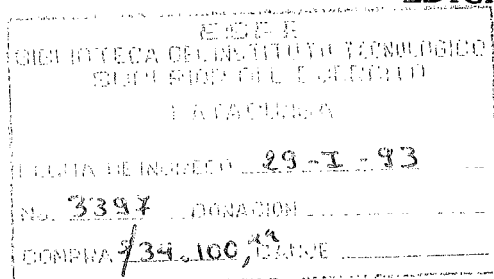 BIBLIOTECA DEL INSTITUTO TECNOLOGICO
SUPERIOR DEL EJERCITO
LATACUNGA
FECHA DE INGRESO 29-I-93
No. 3397 DONACION
COMPRA $34.100, CANJE